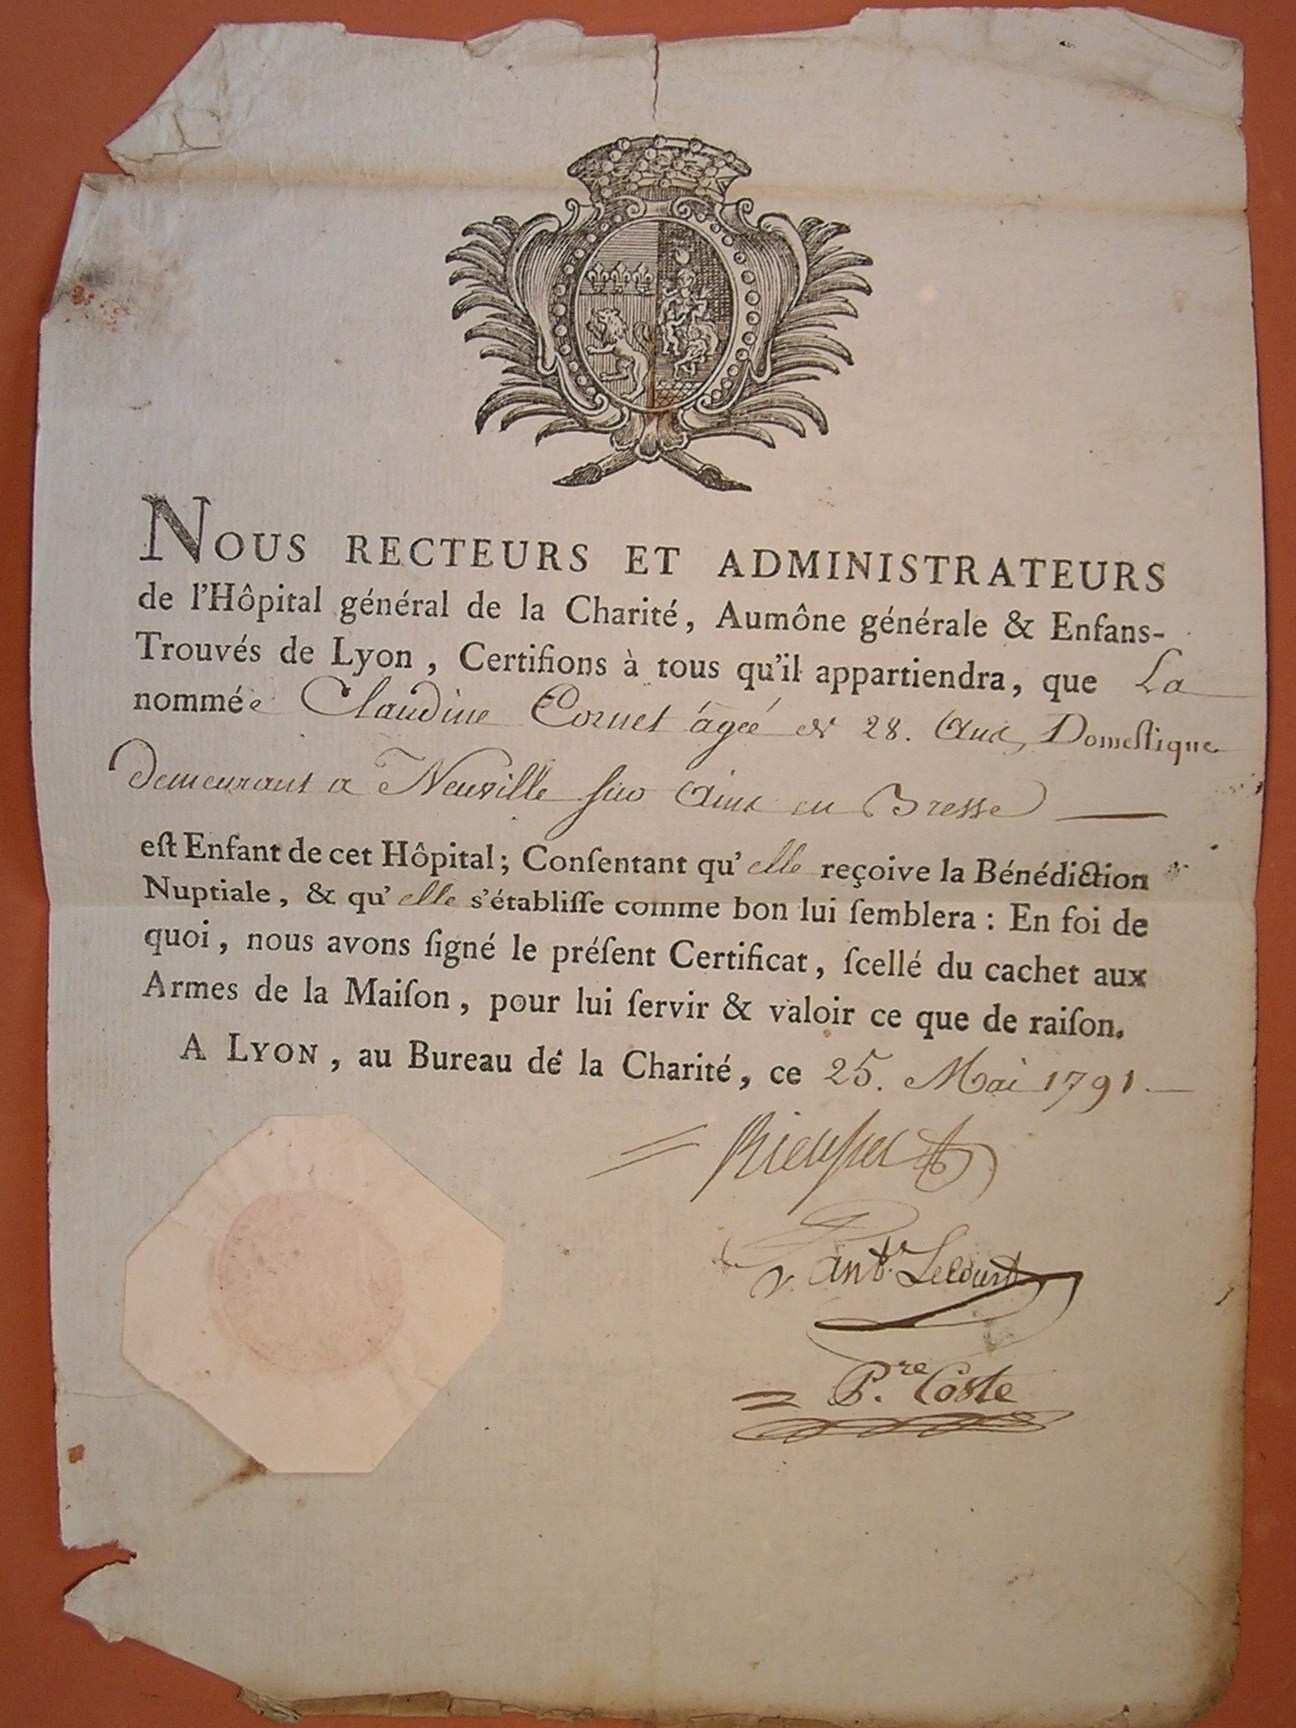 NOUS RECTEURS ET ADMINISTRATEURS
de l'Hôpital général de la Charité, Aumône générale & Enfans-
Trouvés de Lyon, Certifions à tous qu'il appartiendra, que La
nommée Claudine Cornet âgée de 28. Ans, Domestique
demeurant a Neuville sur Ains en Bresse
eſt Enfant de cet Hôpital; Conſentant qu'elle reçoive la Bénédiction
Nuptiale, & qu'elle s'établiſſe comme bon lui ſemblera: En foi de
quoi, nous avons ſigné le préſent Certificat, ſcellé du cachet aux
Armes de la Maiſon, pour lui ſervir & valoir ce que de raiſon.
A LYON, au Bureau de la Charité, ce 25. Mai 1791.
Antᵉ. Lecourt
P.re Coste